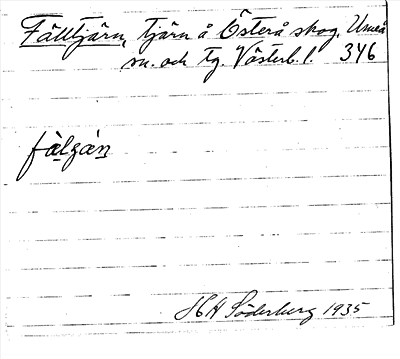 Fälltjärn, tjärn å Österå skog, Umeå
sn. och tg. Västerb. l. 346
fàlgán
HH Söderberg 1935